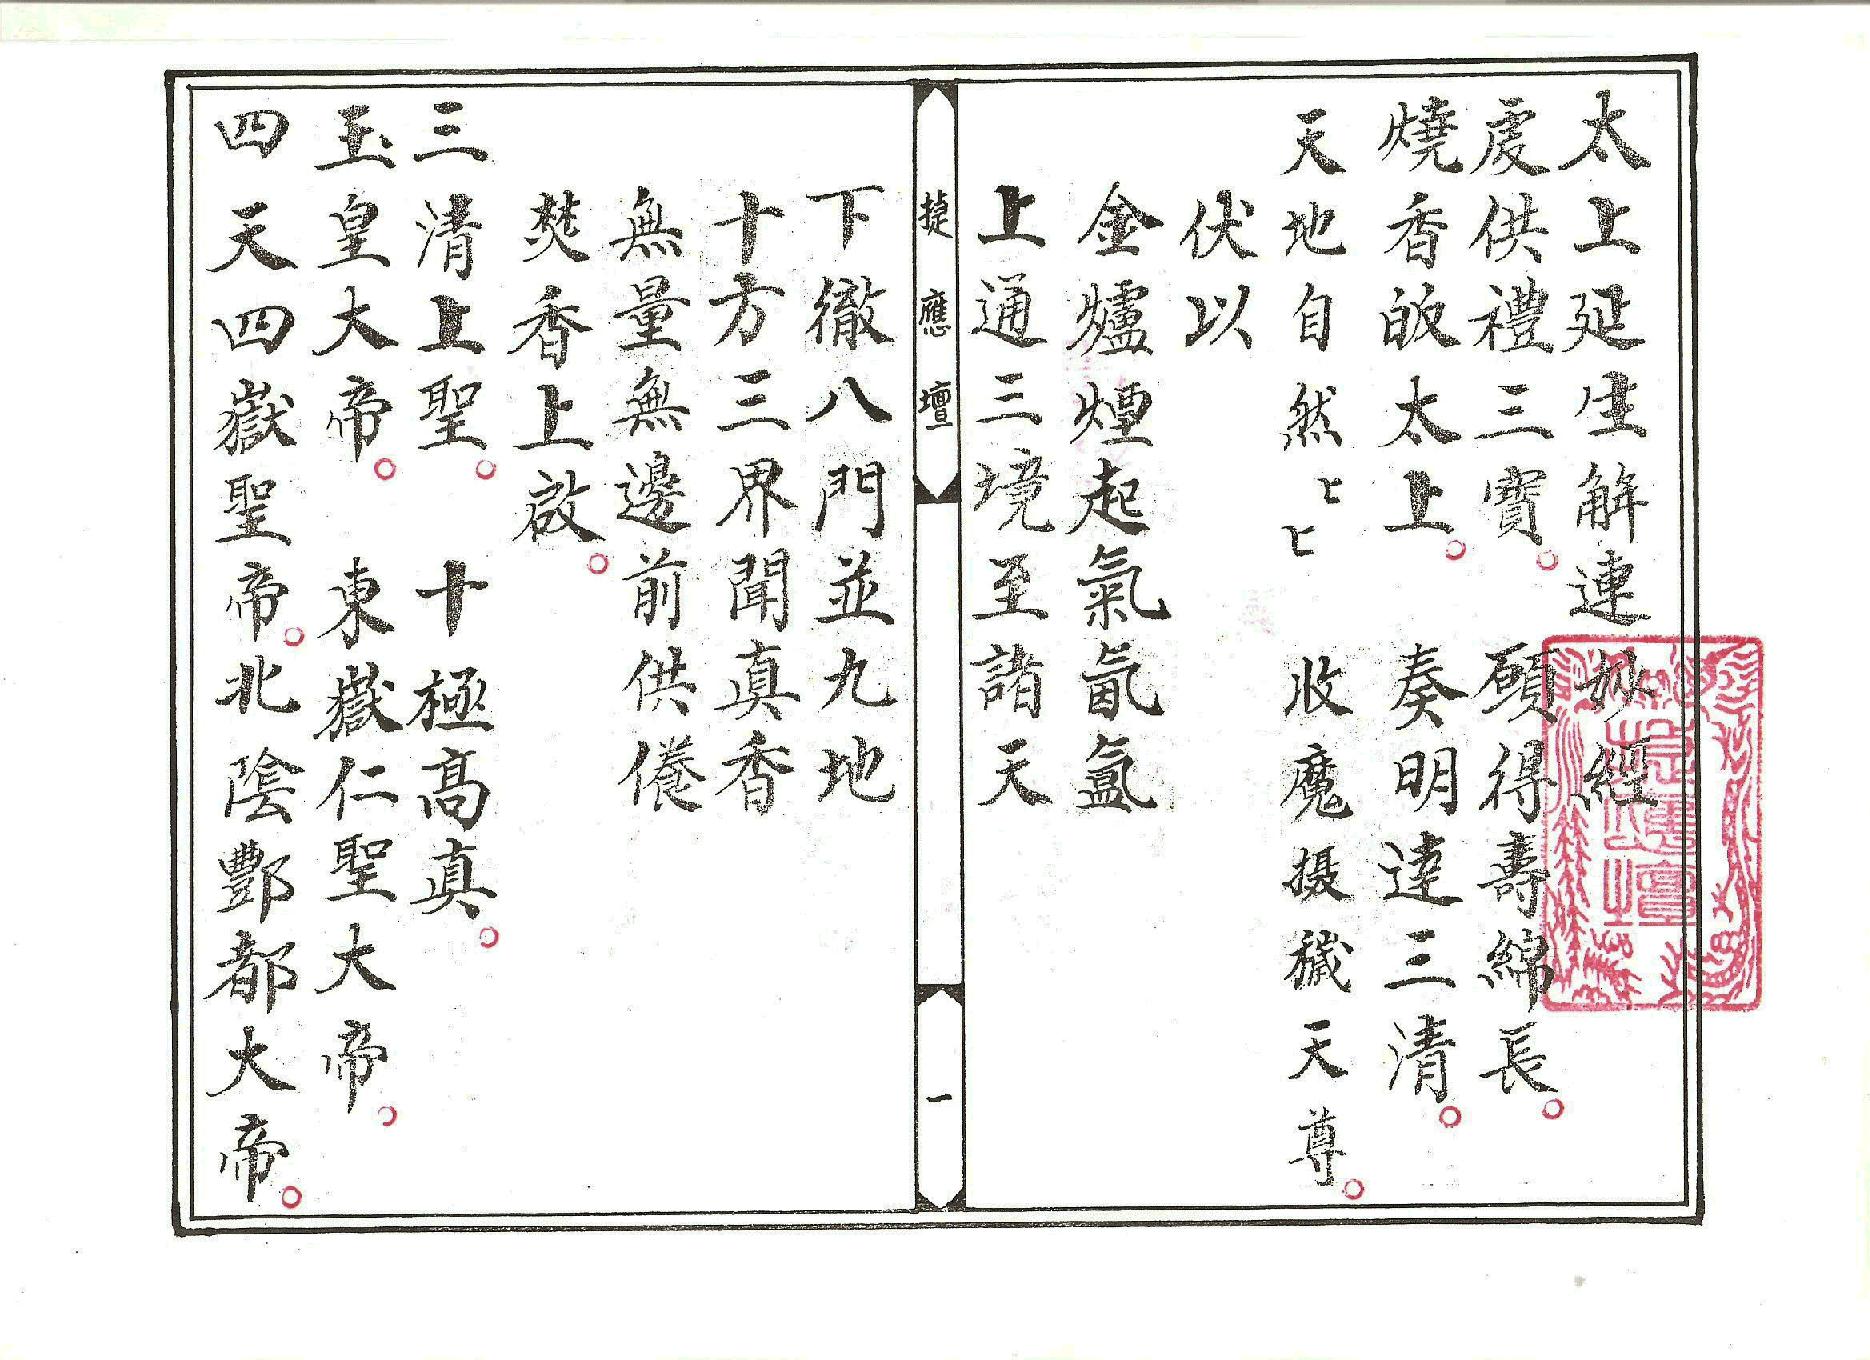 太上延生解連妙經
虔供禮三寶。 願得壽綿長。
燒香皈太上。 奏明達三清。
天地自然匕匕 收魔摄穢天尊。
伏以
金爐煙起氣氤氳
上通三境至諸天
捷應壇
一
下徹八門並九地
十方三界聞真香
無量無邊前供養
焚香上啟。
三清上聖。 十極高真。
玉皇大帝。 東嶽仁聖大帝。
四天四嶽聖帝。北陰酆都大帝。